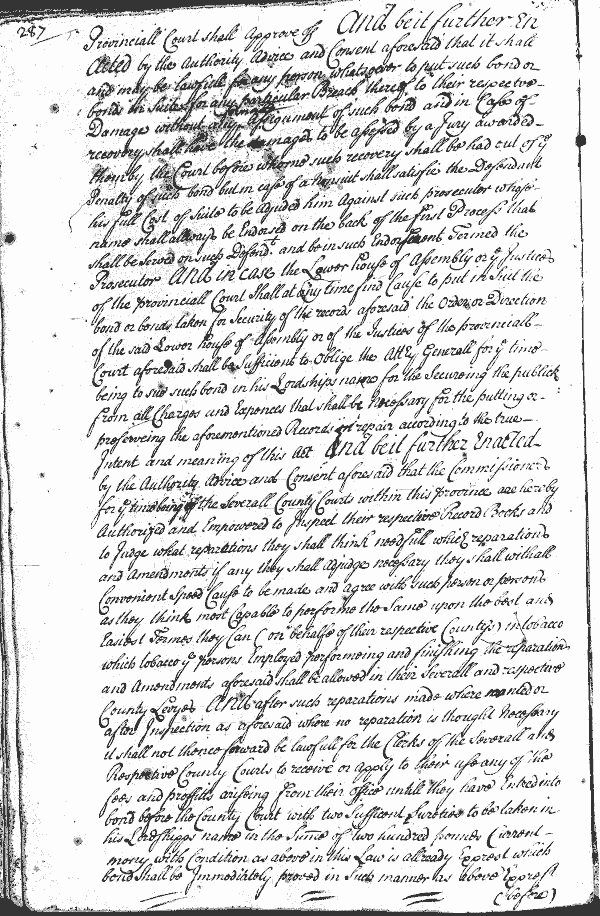 287
Provinciall Court shall Approve off And be it further En
Acted by the Authority Advice and Consent aforesaid that it shall
and may be lawfull for any person whatsoever to put such bond or
bonds in Suite for any particular Breach thereof to their respective
Damage without any Assignment of such bond and in Case of
recovery shall have the damages to be assessed by a Jury awarded
them by the Court before whome such recovery shall be had out of ye
penalty of such bond but in case of a nonsuit shall satisfie the Defendant
his full Cost of Suite to be adjudged him Against such prosecutor whose
name shall allways be Endorsed on the back of the first Process that
shall be Served on such Defendt. and be in such Endorsement Termed the
Prosecutor And in case the Lower house of Assembly or ye Justices
of the provinciall Court Shall at any time find Cause to put in Suit the
bond or bonds taken for Security of the records aforesaid the Order or Direction
of the said Lower house of Assembly or of the Justices of the provinciall
Court aforesaid shall be Sufficient to oblige the Attry Generall for ye time
being to sue such bond in his Lordships name for the Secureing the publick
from all Charges and Expences that shall be necessary for the putting or
preserveing the aforementioned Records in repair according to the true
Intent and meaning of this act And be it further Enacted
by the Authority Advice and Consent aforesaid that the Commissioners
for ye time being of the Severall County Courts within this province are hereby
Authorized and Empowered to Inspect their respective Record Books and
to Judge what reparations they shall think needfull which reparations
and Amendments if any they shall adjudge necessary they shall with all
Convenient Speed Cause to be made and agree with such person or persons
as they think most Capable to performe the Same upon the best and
Easiest Termes they Can (on behalfe of their respective Countys) in tobacco
which tobacco ye persons Employed performeing and finishing the reparations
and Amendments aforesaid shall be allowed in their Severall and respective
County Levyes And after such reparations made where wanted or
after Inspection as aforesaid where no reparation is thought necessary
it shall not thence forward be lawfull for the Clerks of the Severall and
Respective County Courts to receive or apply to their use any of the
fees and proffitts ariseing from their office untill they have Entred into
bond before the County Court with two Sufficent Sureties to be taken in
his Lordshipps name in the Sume of two hundred pounds Current
mony with Condition as above in this Law is allready Exprest which
bond shall be Immediately proved in Such manner as above Exprest
(before)